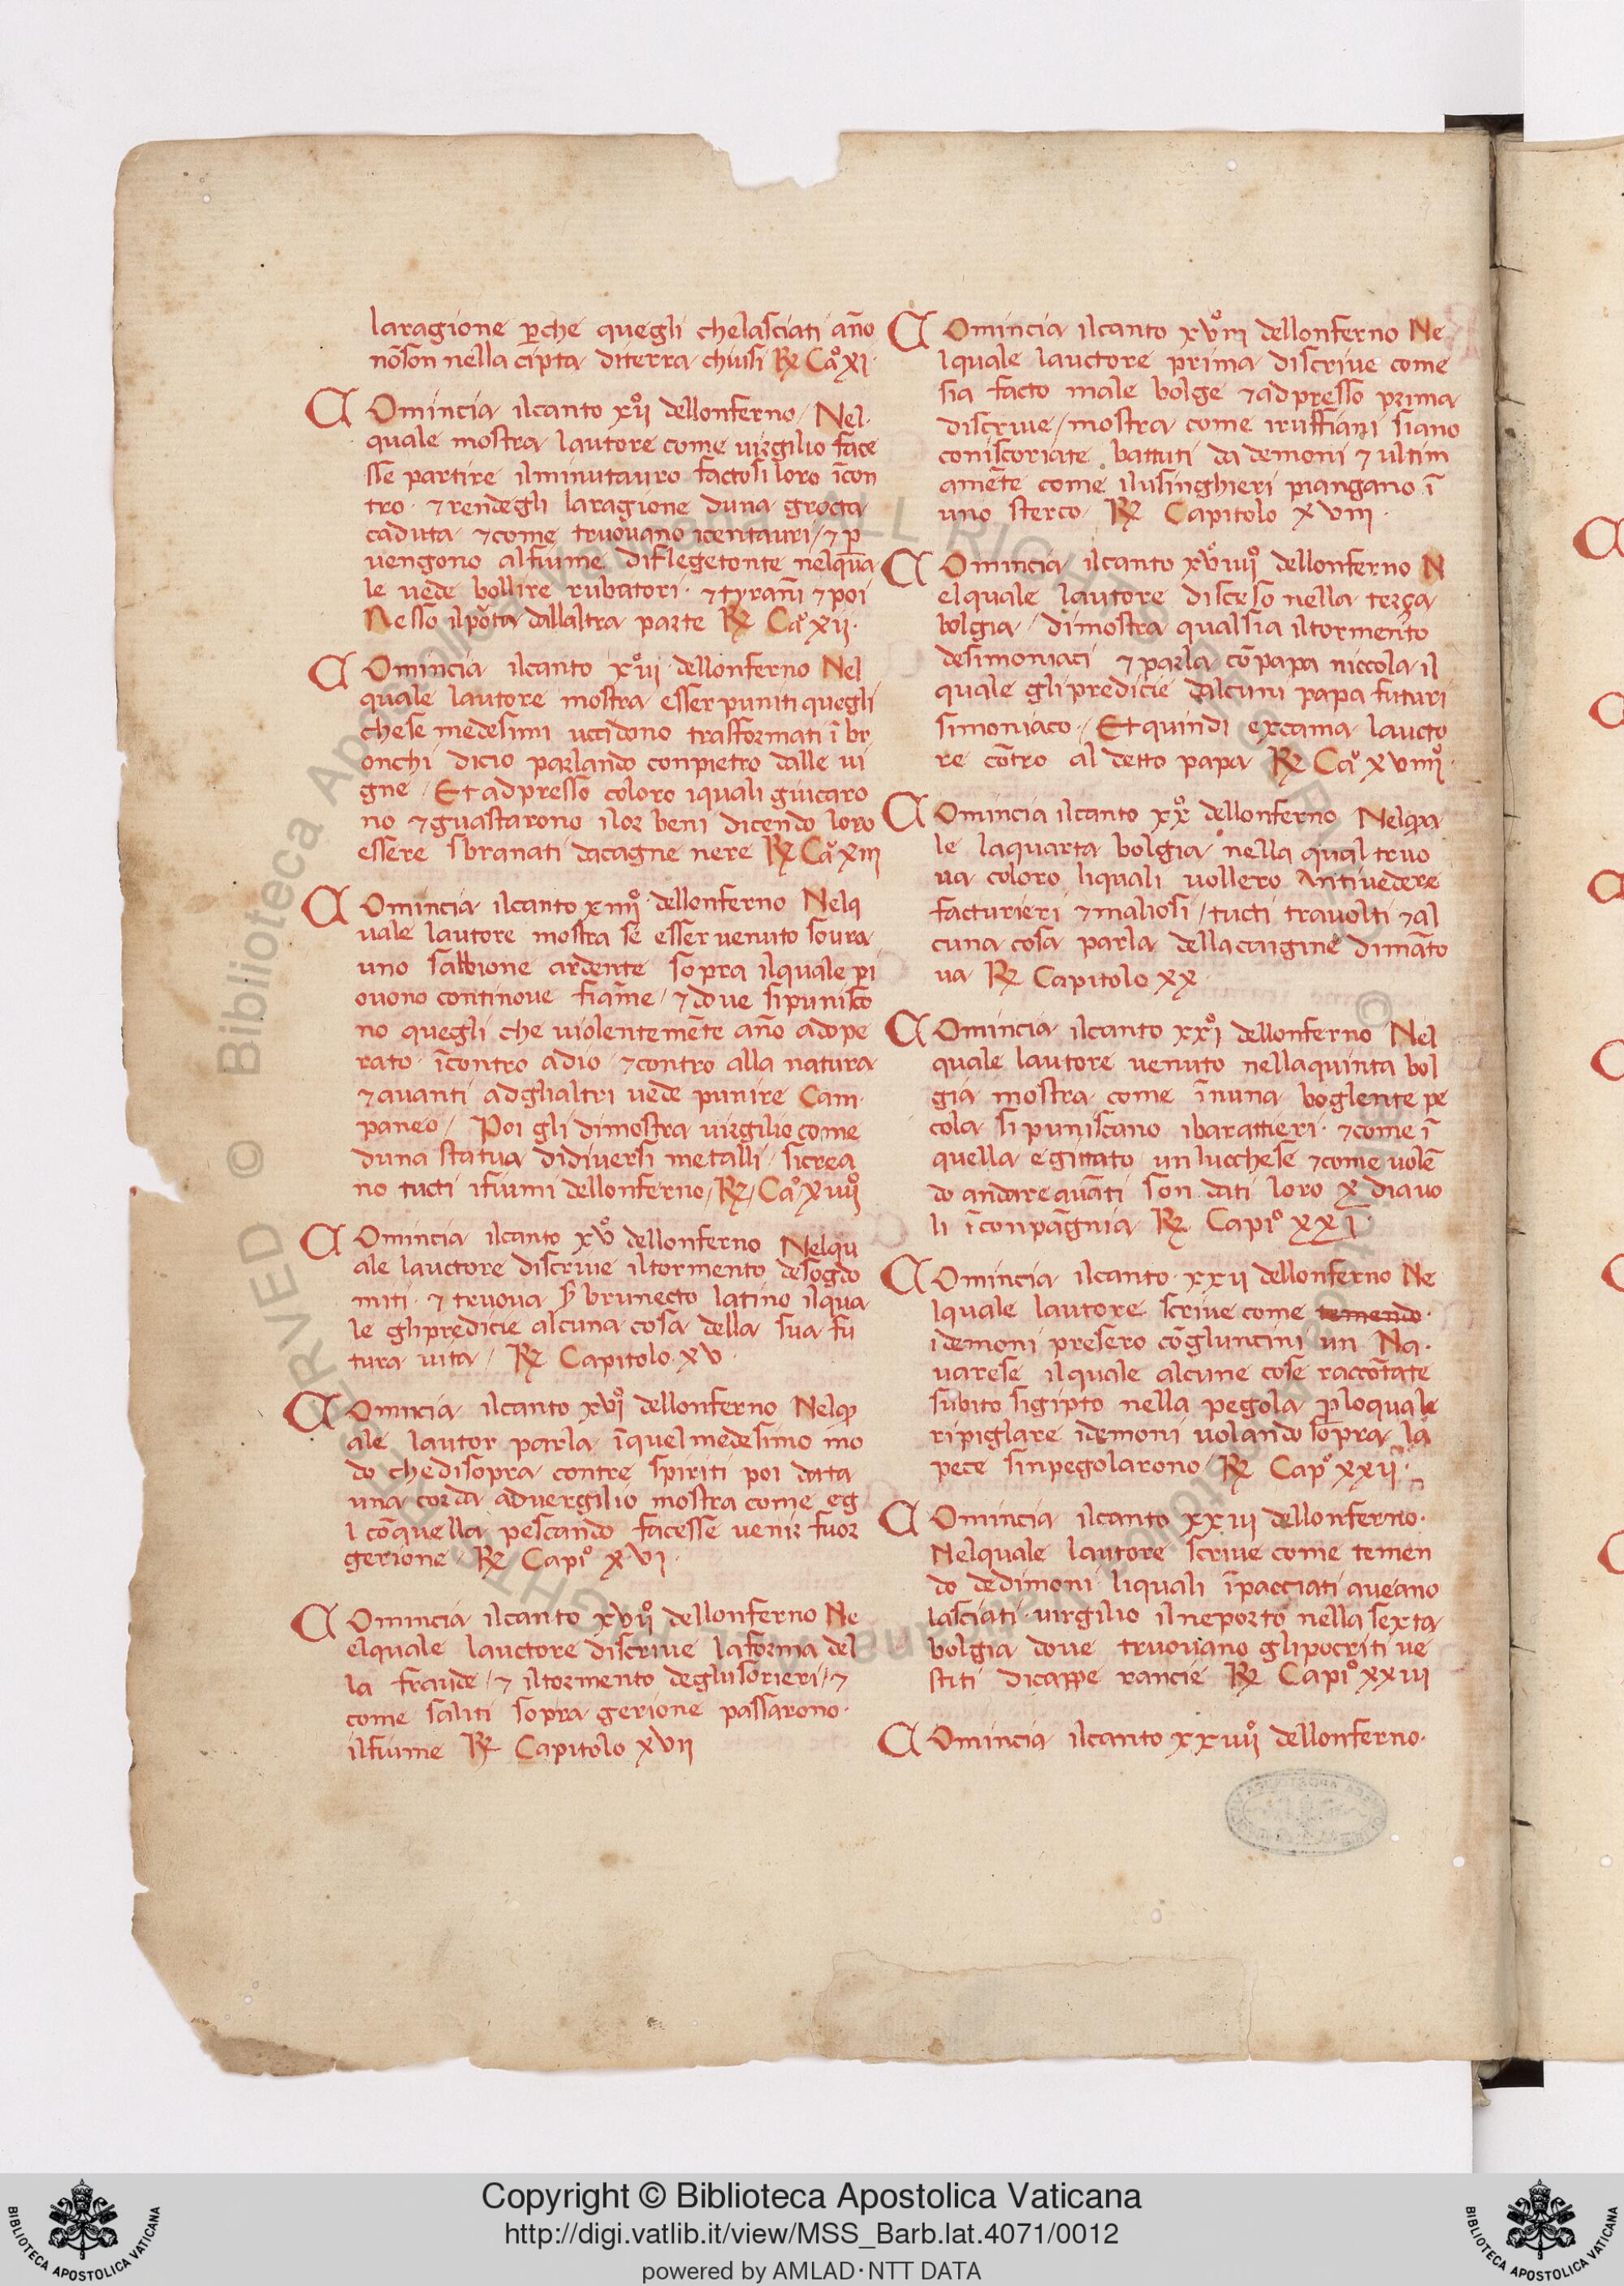 laragione ꝑche quegli chelasciati ãno
nõson nella cipta diterra chiusi ℞ Caº xi·
COmincia ilcanto xijº dellonferno/ Nel·
quale mostra lautore come uirgilio face
sse partire ilminutauro factosi loro ĩcon
tro· ⁊ rendegli laragione duna grocta
caduta· ⁊come truouano icentauri/ ⁊ ꝑ
uengono alfiume diflegetonte nelqua
le uede bollire rubatori· ⁊tyrañi ⁊poi
Nesso ilpõta dallaltra parte ℞ Caº xii·
COmincia ilcanto xiijº dellonferno Nel
quale lautore mostra esser puniti quegli
chese medesimi uccidono trasformati ĩ br
onchi dicio parlando conpietro dalle ui
gne/ Et adpresso coloro iquali giucaro
no ⁊guastarono ilor beni dicendo loro
essere sbranati dacagne nere ℞ Caº xiii
COmincia ilcanto xiiijº dellonferno Nelq
uale lautore mostra se esser uenuto soura
uno sabbione ardente sopra ilquale pi
ouono continoue fiãme/ ⁊doue sipunisco
no quegli che uiolentemẽte ãno adope
rato· ĩcontro adio· ⁊contro alla natura
⁊auanti adglialtri uede punire Cam·
paneo/ Poi gli dimostra uirgilio come
duna statua didiuersi metalli/ sicrea
no tucti ifiumi dellonferno/ ℞/ Caº xiiijº
COmincia ilcanto xvº dellonferno Nelqu
ale lauctore discriue iltormento desogdo
miti· ⁊ truoua ẜ brunecto latino ilqua
le glipredicie alcuna cosa della sua fu
tura uita/ ℞ Capitolo xv·
COmincia ilcanto xvjº dellonferno Nelqu
ale lautor parla ĩquel medesimo mo
do chedisopra contre spiriti poi data
una corda aduergilio mostra come eg
l cõquella pescando facesse uenir fuor
gerione· ℞ Capiº xvi·
COmincia ilcanto xvijº dellonferno Ne
elquale lauctore discriue laforma del
la fraude/ ⁊ iltormento degliusorieri/ ⁊
come saliti sopra gerione passarono·
ilfiume ℞ Capitolo xvii
COmincia ilcanto xviijº dellonferno Ne
lquale lauctore prima discriue come
sia facto male bolge ⁊adpresso prima
discriue/ mostra come iruffiani siano
coniscoriate battuti da demoni ⁊ ultim
amẽte come ilusinghieri piangano ĩ
uno sterco· ℞ Capitolo xviii·
COmincia ilcanto xviiijº dellonferno N
elquale lautore disceso nella terça
bolgia/ dimostra qualsia iltormento
desimoniaci ⁊ parla cõpapa niccola il
quale glipredicie dalcuni papa futuri
simoniaco/ Et quindi exclama laucto
re cõtro al detto papa ℞ Caº xviiijº·
COmincia ilcanto xxº dellonferno Nelqua
le laquarta bolgia nella qual truo
ua coloro liquali uollero antiuedere
facturieri ⁊maliosi/ tucti trauolti ⁊al
cuna cosa parla dellaorigine dimãto
ua ℞ Capitolo xx·
COmincia ilcanto xxjº dellonferno Nel
quale lautore uenuto nellaquinta bol
gia mostra come ĩnuna boglente pe
cola si puniscano ibarattieri· ⁊come ĩ
quella egittato un lucchese ⁊come uolẽ
do andare auãti son dati loro x diauo
li ĩconpagnia ℞ Capiº xxi·
COmincia ilcanto· xxii dellonferno Ne
lquale lautore scriue come temendo·
idemoni presero cõgluncini un Na·
uarese ilquale alcune cose raccõtate
subito sigipto nella pegola ꝑloquale
ripiglare idemoni uolando sopra la
pece sinpegolarono/ ℞ Capº xxii·
COmincia ilcanto xxiii dellonferno·
Nelquale lautore scriue come temen
do dedimoni liquali ĩpacciati aueano
lasciati· uirgilio ilneportò nella sexta
bolgia doue truouano glipocriti ue
stiti dicappe rancie ℞ Capiº xxiii
COmincia ilcanto xxiiijº dellonferno·
Copyright © Biblioteca Apostolica Vaticana
http://digi.vatlib.it/view/MSS_Barb.lat.4071/0012
powered by AMLAD·NTT DATA